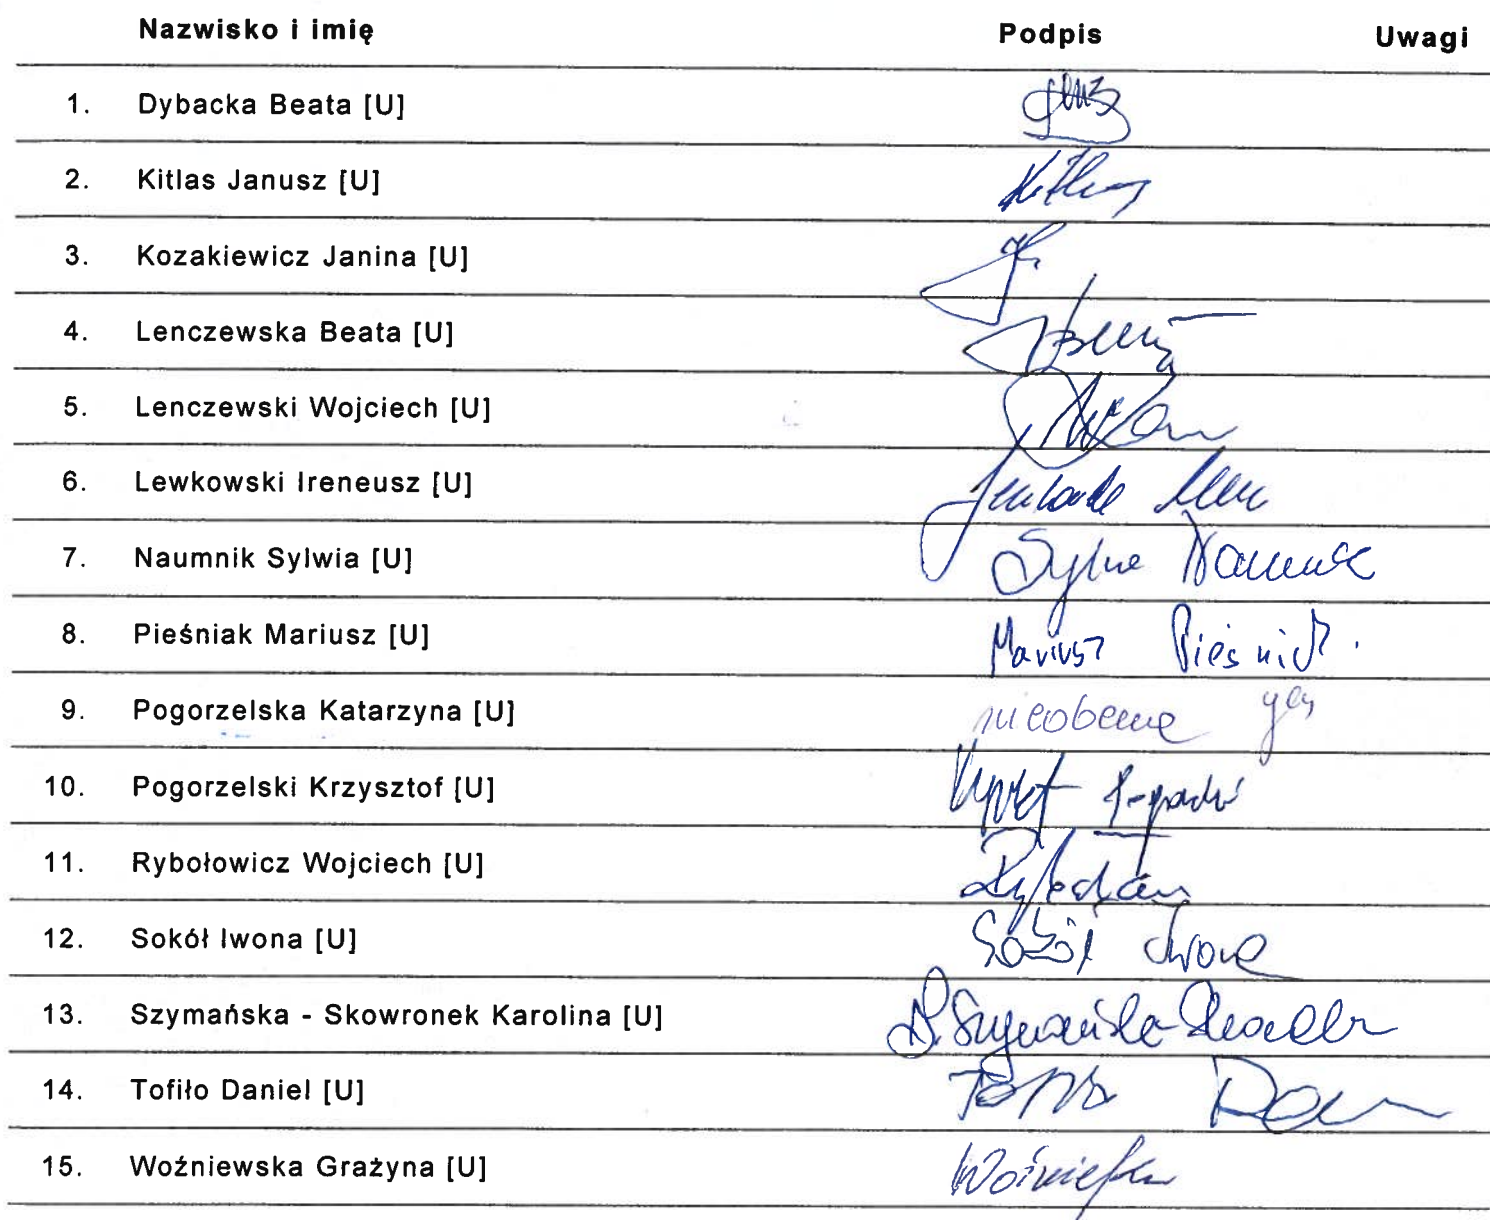 Nazwisko i imię Podpis Uwagi
1. Dybacka Beata [U]
2. Kitlas Janusz [U] Kitlas
3. Kozakiewicz Janina [U]
4. Lenczewska Beata [U]
5. Lenczewski Wojciech [U]
6. Lewkowski Ireneusz [U]
7. Naumnik Sylwia [U] Sylwia Naumnik
8. Pieśniak Mariusz [U] Mariusz Pieśniak
9. Pogorzelska Katarzyna [U] nieobecna
10. Pogorzelski Krzysztof [U]
11. Rybołowicz Wojciech [U]
12. Sokół Iwona [U] Sokół Iwona
13. Szymańska - Skowronek Karolina [U]
14. Tofiło Daniel [U]
15. Woźniewska Grażyna [U]